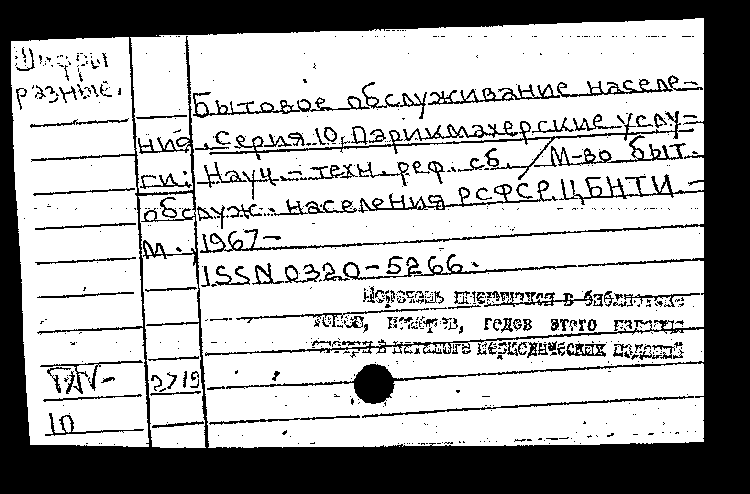 Шифры
разные.
Бытовое обслуживание населе-
ния. Серия 10, Парикмахерские услу-
ги: Науч.-техн. реф. сб. / М-во быт.
обслуж. населения РСФСР. ЦБНТИ. -
м., 1967-
ISSN 0320-5266.
Перечень имеющихся в библиотеке
томов, номеров, годов этого издания
смотри в каталоге периодических изданий
10